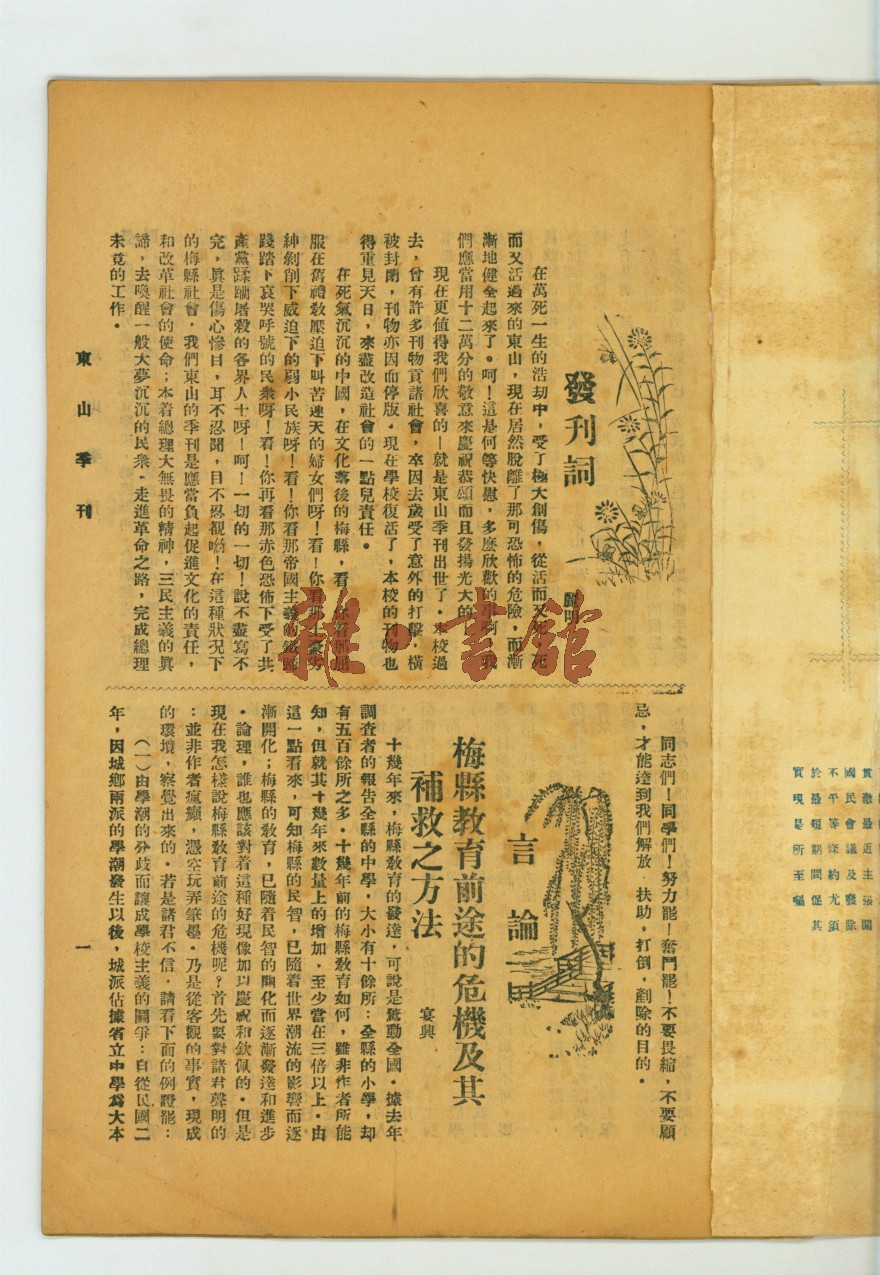 貫徹最近主張開
國民會議及廢除
不平等條約尤須
於最短期間促其
實現是所至囑
發刊詞
在萬死一生的浩劫中，受了極大創傷，從活而又死，死
而又活過來的東山，現在居然脫離了那可恐怖的危險，而漸
漸地健全起來了。呵！這是何等快慰，多麼欣歡的事啊，我
們應當用十二萬分的敬意來慶祝恭頌而且發揚光大的。
現在更值得我們欣喜的—就是東山季刊出世了。本校過
去，曾有許多刊物貢諸社會，卒因去歲受了意外的打擊，橫
被封閉，刊物亦因而停版。現在學校復活了，本校的刊物也
得重見天日，來盡改造社會的一點兒責任。
在死氣沉沉的中國，在文化落後的梅縣，看！你看那屈
服在舊禮教壓迫下叫苦連天的婦女們呀！看！你看那土豪劣
紳剝削下威迫下的弱小民族呀！看！你看那帝國主義的鐵蹄
踐踏下哀哭呼號的民衆呀！看！你再看那赤色恐佈下受了共
產黨蹂躪屠殺的各界人士呀！呵！一切的一切！說不盡寫不
完，眞是傷心慘目，耳不忍聞，目不忍覩喲！在這種狀况下
的梅縣社會，我們東山的季刊是應當負起促進文化的責任，
和改革社會的使命；本着總理大無畏的精神，三民主義的眞
諦，去喚醒一般大夢沉沉的民衆。走進革命之路，完成總理
未竟的工作。
同志們！同學們！努力罷！奮鬥罷！不要畏縮，不要顧
忌，才能達到我們解放，扶助，打倒，剷除的目的。
言論
梅縣教育前途的危機及其
補救之方法
宴興
十幾年來，梅縣教育的發達，可說是驚動全國。據去年
調查者的報告全縣的中學，大小有十餘所：全縣的小學，却
有五百餘所之多。十幾年前的梅縣教育如何，雖非作者所能
知，但就其十幾年來數量上的增加，至少當在三倍以上。由
這一點看來，可知梅縣的民智，已隨着世界潮流的影響而逐
漸開化；梅縣的教育，已隨着民智的開化而逐漸發達和進步
。論理，誰也應該對着這種好現像加以慶祝和欽佩的。但是
現在我怎樣說梅縣教育前途的危機呢？首先要對諸君聲明的
：並非作者瘋癲，憑空玩弄筆墨。乃是從客觀的事實，現成
的環境，察覺出來的。若是諸君不信，請看下面的例證罷：
（一）由學潮的分歧而釀成學校主義的鬥爭：自從民國二
年，因城鄉兩派的學潮發生以後，城派佔據省立中學爲大本
東山季刊
一